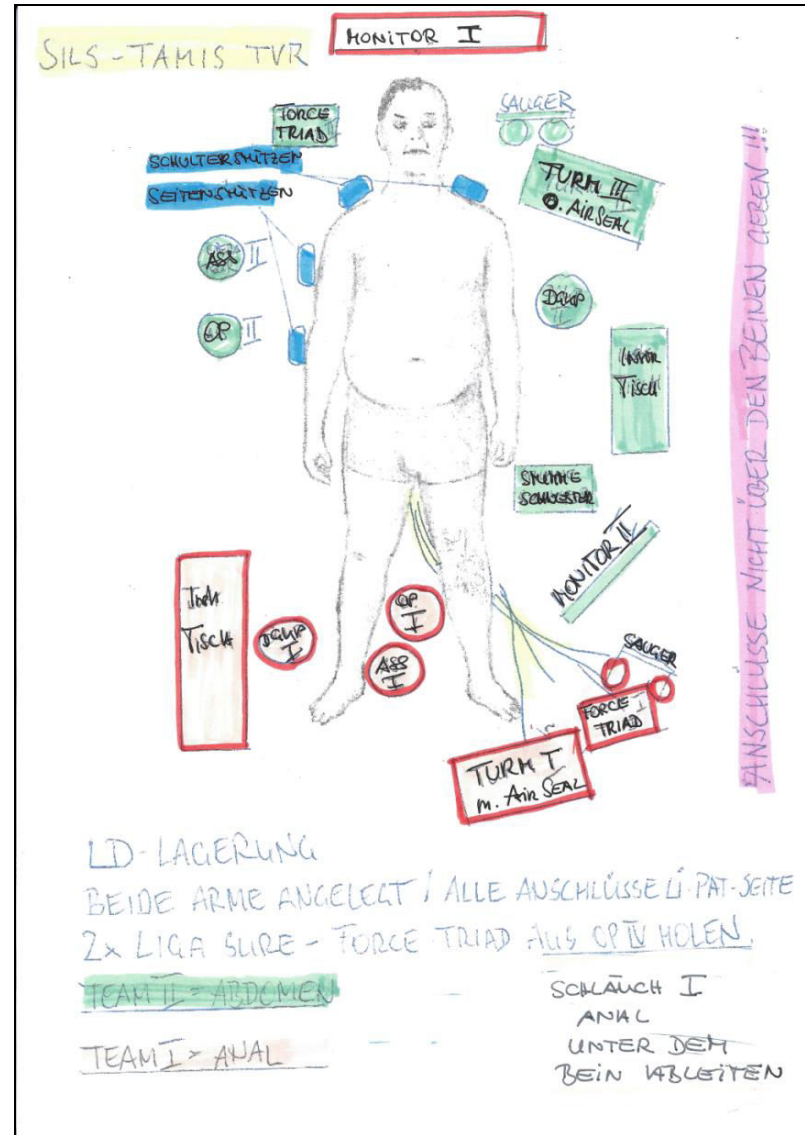 MONITOR I
SILS-TAMIS TVR
FORCE
TRIAD II
SAUGER
SCHULTERSTÜTZEN
SEITENSTÜTZEN
TURM III
O. AIRSEAL
ASS II
OP II
DGKP
II
TISCH
STUMME
SCHWESTER
MONITOR II
TISCH
DGKP
I
OP
I
ASS
I
SAUGER
FORCE I
TRIAD
TURM I
m. AIR SEAL
ANSCHLÜSSE NICHT ÜBER DEN BEINEN GEBEN !!!
LD-LAGERUNG
BEIDE ARME ANGELEGT / ALLE ANSCHLÜSSE LI. PAT-SEITE
2x LIGA SURE - FORCE TRIAD AUS OP IV HOLEN.
TEAM II = ABDOMEN
TEAM I = ANAL
SCHLÄUCH I
ANAL
UNTER DEM
BEIN ABLEITEN